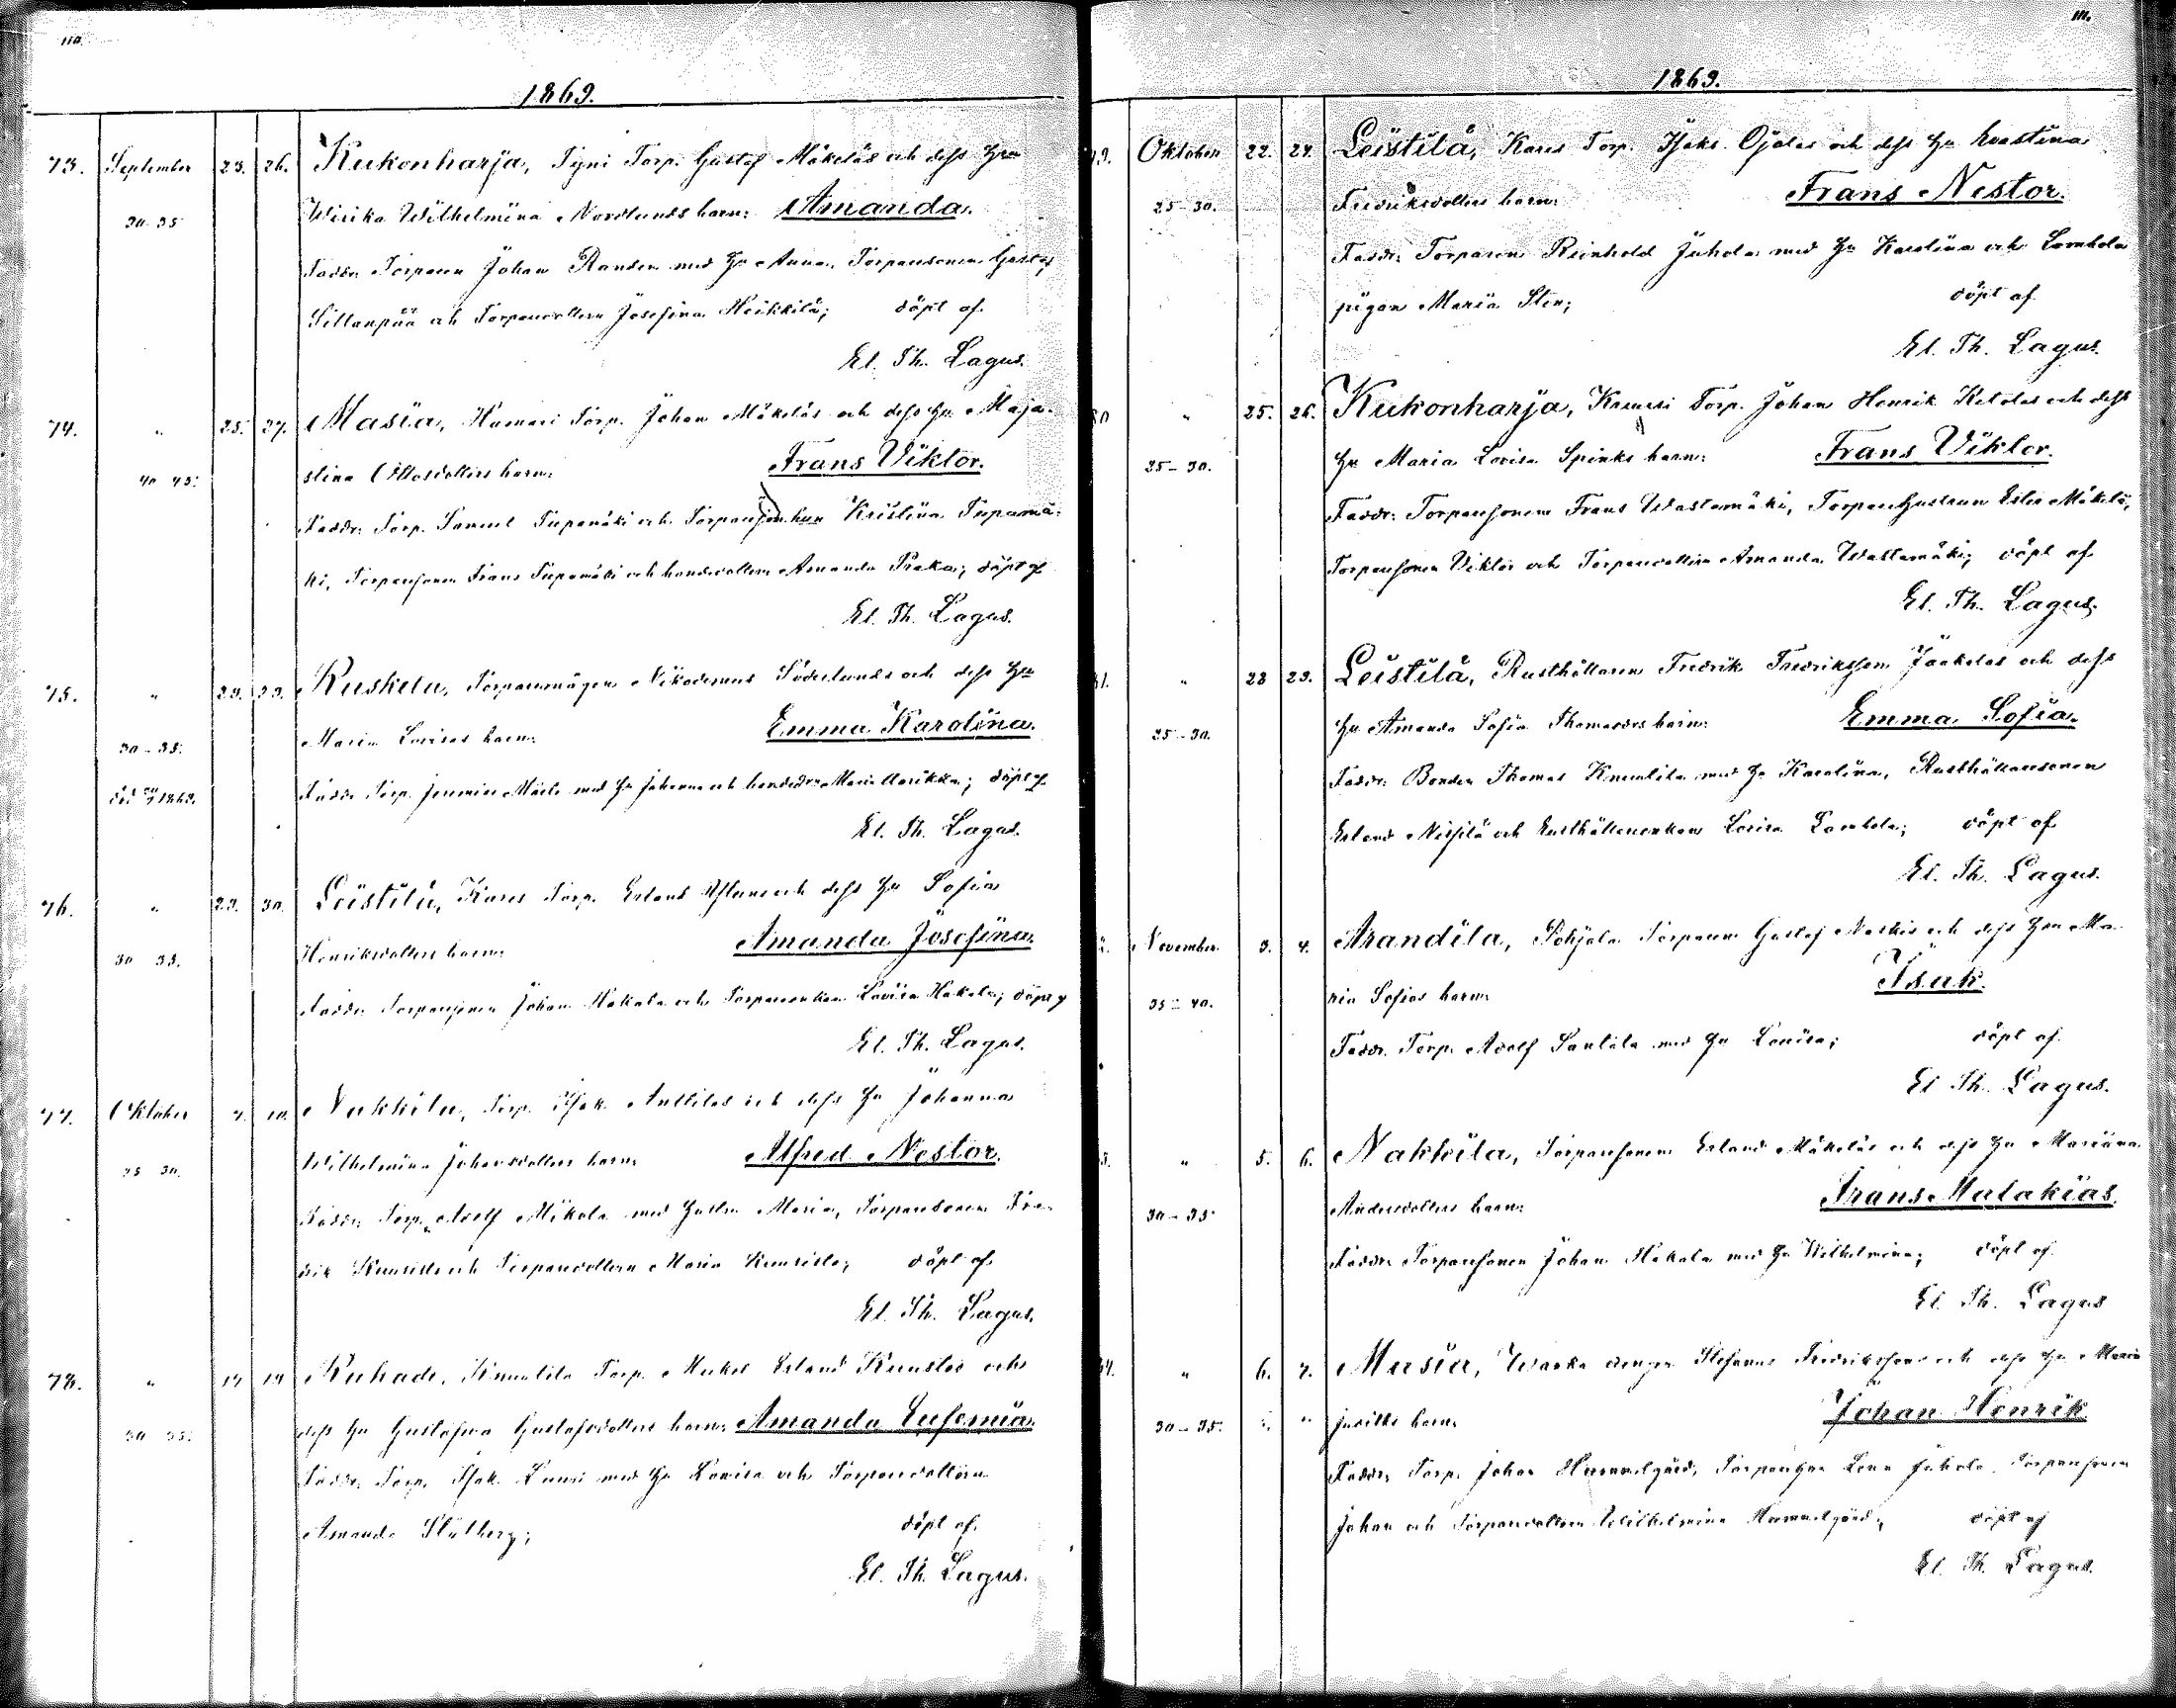 110.
1869.
73. September 23. 26. Kukonharja, Tyni Torp. Gustaf Mäkeläs och dess Hu
30-35 Wirika Wilhelmina Nordlunds barn: Amanda.
Faddr. Torparen Johan Randen med Hu Anna, Torparesonen Gustaf
Sillanpää och Torparedottern Josefina Heikkilä; döpt af
El. Th. Lagus.
74. " 25. 27. Masia, Hamari Torp. Johan Mäkeläs och dess Hu Maja
40 45. stina Ottosdotters barn: Frans Viktor.
Faddr. Torp. Samuel Tupamäki och Kristina Tupamä-
ki, Torparesonen Frans Tupamäki och bondedottern Amanda Praka; döpt af
El. Th. Lagus.
75. " 29. 29. Ruskela, Torparemågen Nikodemus Söderlunds och dess Hu
30-35. Maria Lovisas barn: Emma Karolina.
Faddr. Torp. Jeremias med Hu Johanna och Maria; döpt af
El. Th. Lagus.
76. " 29. 30. Leistilä, Kares Torp. Erland och dess Hu Sofia
30 35. Henriksdotters barn: Amanda Josefina.
Faddr. Torparesonen Johan Hakala och Torpareenkan Lovisa Hakala; döpt af
El. Th. Lagus.
77. Oktober 7. 10. Nakkila, Torp. Isak Anttilas och dess Hu Johanna
25 30. Wilhelmina Johansdotters barn: Alfred Nestor.
Faddr. Torp. Adolf Mikola med Hustru Maria, Torparesonen Fre-
drik och Torparedottern Maria döpt af
El. Th. Lagus.
78. " 17 19 Ruhade, Knuutila Torp. Mickel Erland och
30 35. dess Hu Gustafva Gustafsdotters barn: Amanda Eufemia.
Faddr. Torp. Isak Lauri med Hu Lovisa och Torparedottern
Amanda Stålberg; döpt af
El. Th. Lagus.
111.
1869.
79. Oktober 22. 24. Leistilä, Kares Torp. Isaks Ojalas och dess Hu Kristina
25-30. Fredriksdotters barn: Frans Nestor.
Faddr. Torparen Reinhold Juhola med Hu Karolina och Lambola
pigan Maria Sten; döpt af
El. Th. Lagus.
80 " 25. 26. Kukonharja, Torp. Johan Henrik Ketolas och dess
25-30. Hu Maria Lovisa Spinks barn: Frans Viktor.
Faddr. Torparesonen Frans Wastamäki, Torparehustrun Mäkelä,
Torparesonen Viktor och Torparedottern Amanda Wastamäki; döpt af
El. Th. Lagus.
81. " 28 29. Leistilä, Rusthållaren Fredrik Fredriksson Jaakolas och dess
25-30. Hu Amanda Sofia Thomasdrs barn: Emma Sofia.
Faddr. Bonden Thomas Knuutila med Hu Karolina, Rusthållaresonen
Erland och Rusthållareenkan Lovisa Lambola; döpt af
El. Th. Lagus.
2. November 3. 4. Arandila, Pohjala Torparen Gustaf och dess Hu Ma-
35-40. ria Sofias barn: Isak.
Faddr. Torp. Adolf Santala med Hu Lovisa; döpt af
El Th. Lagus.
3. " 5. 6. Nakkila, Torparesonen Erland Mäkeläs och dess Hu Mariana
30-35 Andersdotters barn: Frans Malakias.
Faddr. Torparesonen Johan Hakala med Hu Wilhelmina; döpt af
El. Th. Lagus
84. " 6. 7. Masia, drengen Stefanus Fredriksson och dess Hu Maria
30-35. " " barn: Johan Henrik
Faddr. Torp. Johan Hammelgård, Torparehun Lena Juhola, Torparesonen
Johan och Torparedottern Wilhelmina Hammelgård; döpt af
El. Th. Lagus.